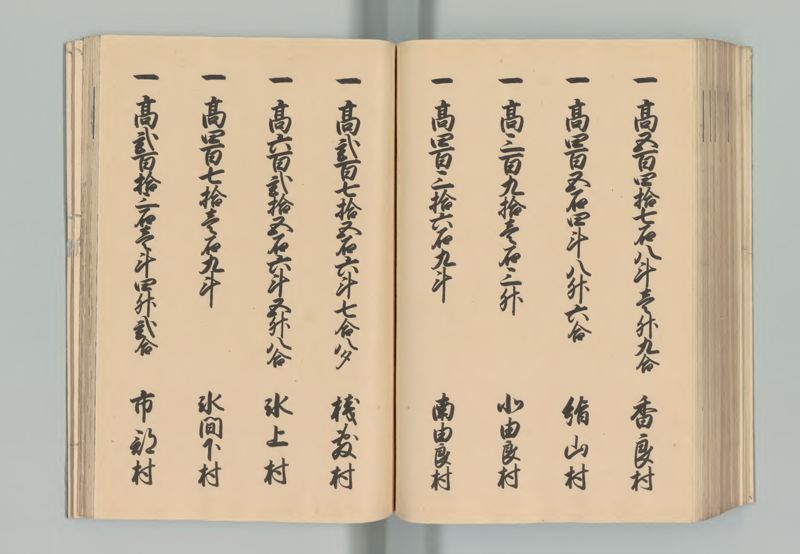 一 高五百四拾七石八斗壱升九合 香良村
一 高四百五石四斗八升六合 絹山村
一 高三百九拾壱石三升 小由良村
一 高四百三拾六石九斗 南由良村
一 高弐百七拾五石六斗七合八夕 桟敷村
一 高六百弐拾五石六斗五升八合 氷上村
一 高四百七拾壱石九斗 氷間下村
一 高弐百拾三石壱斗四升弐合 市部村